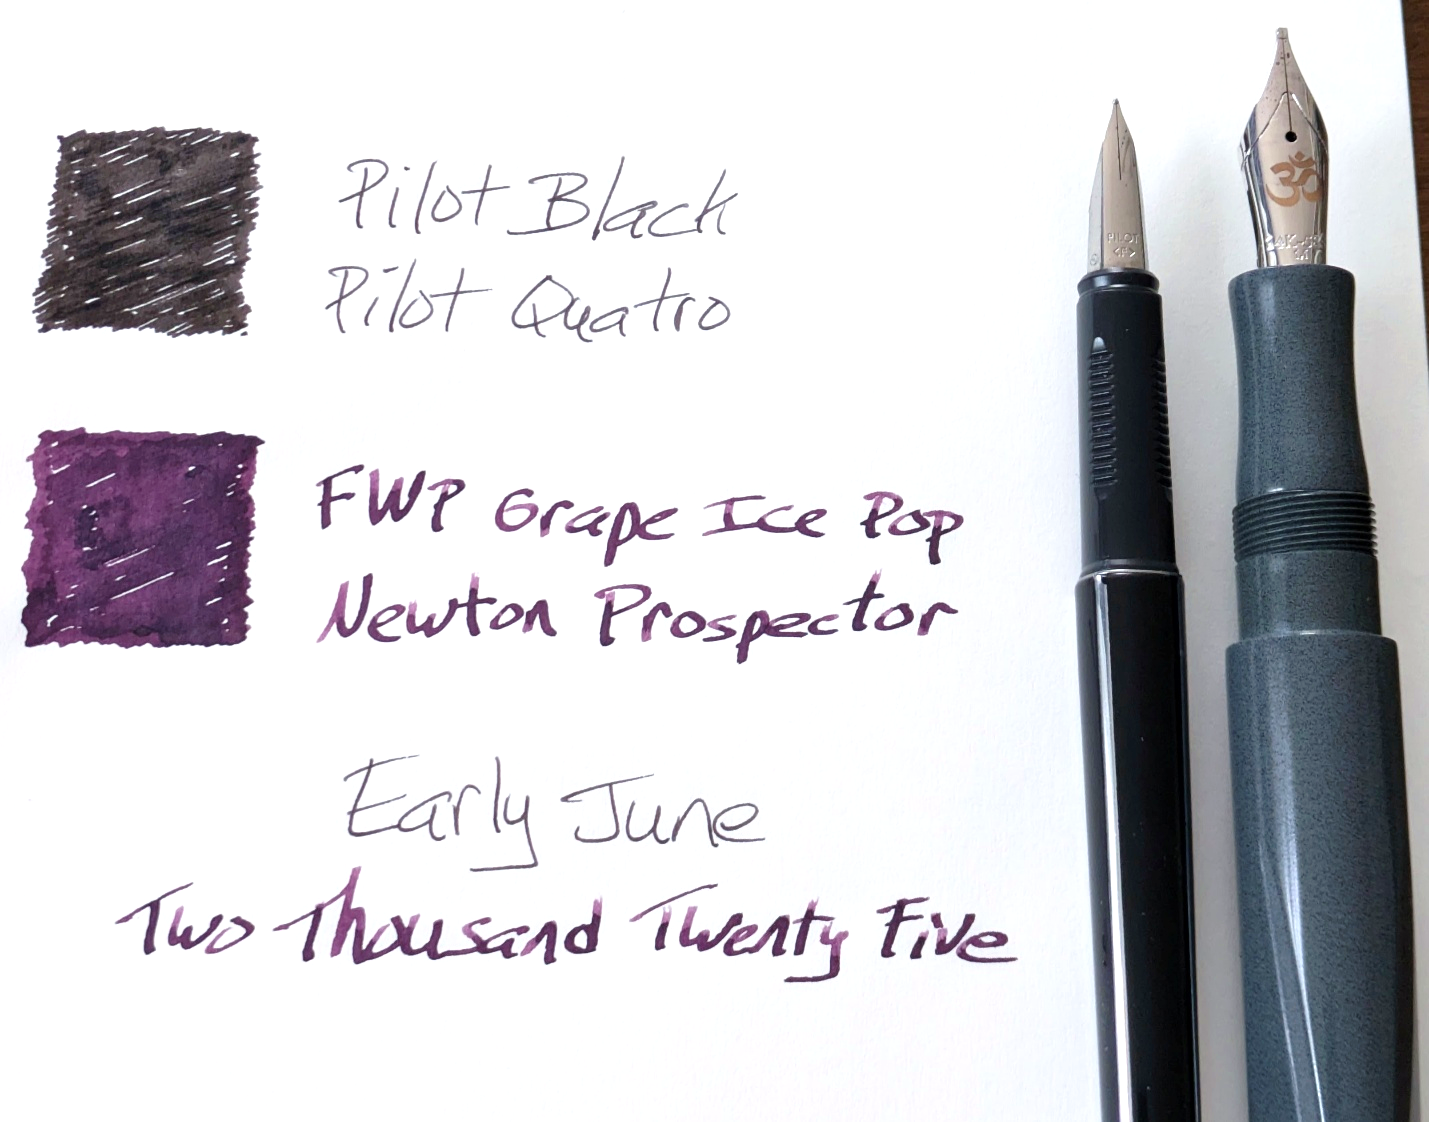 Pilot Black
Pilot Quatro
FWP Grape Ice Pop
Newton Prospector
Early June
Two Thousand Twenty Five
PILOT
<F>
ॐ